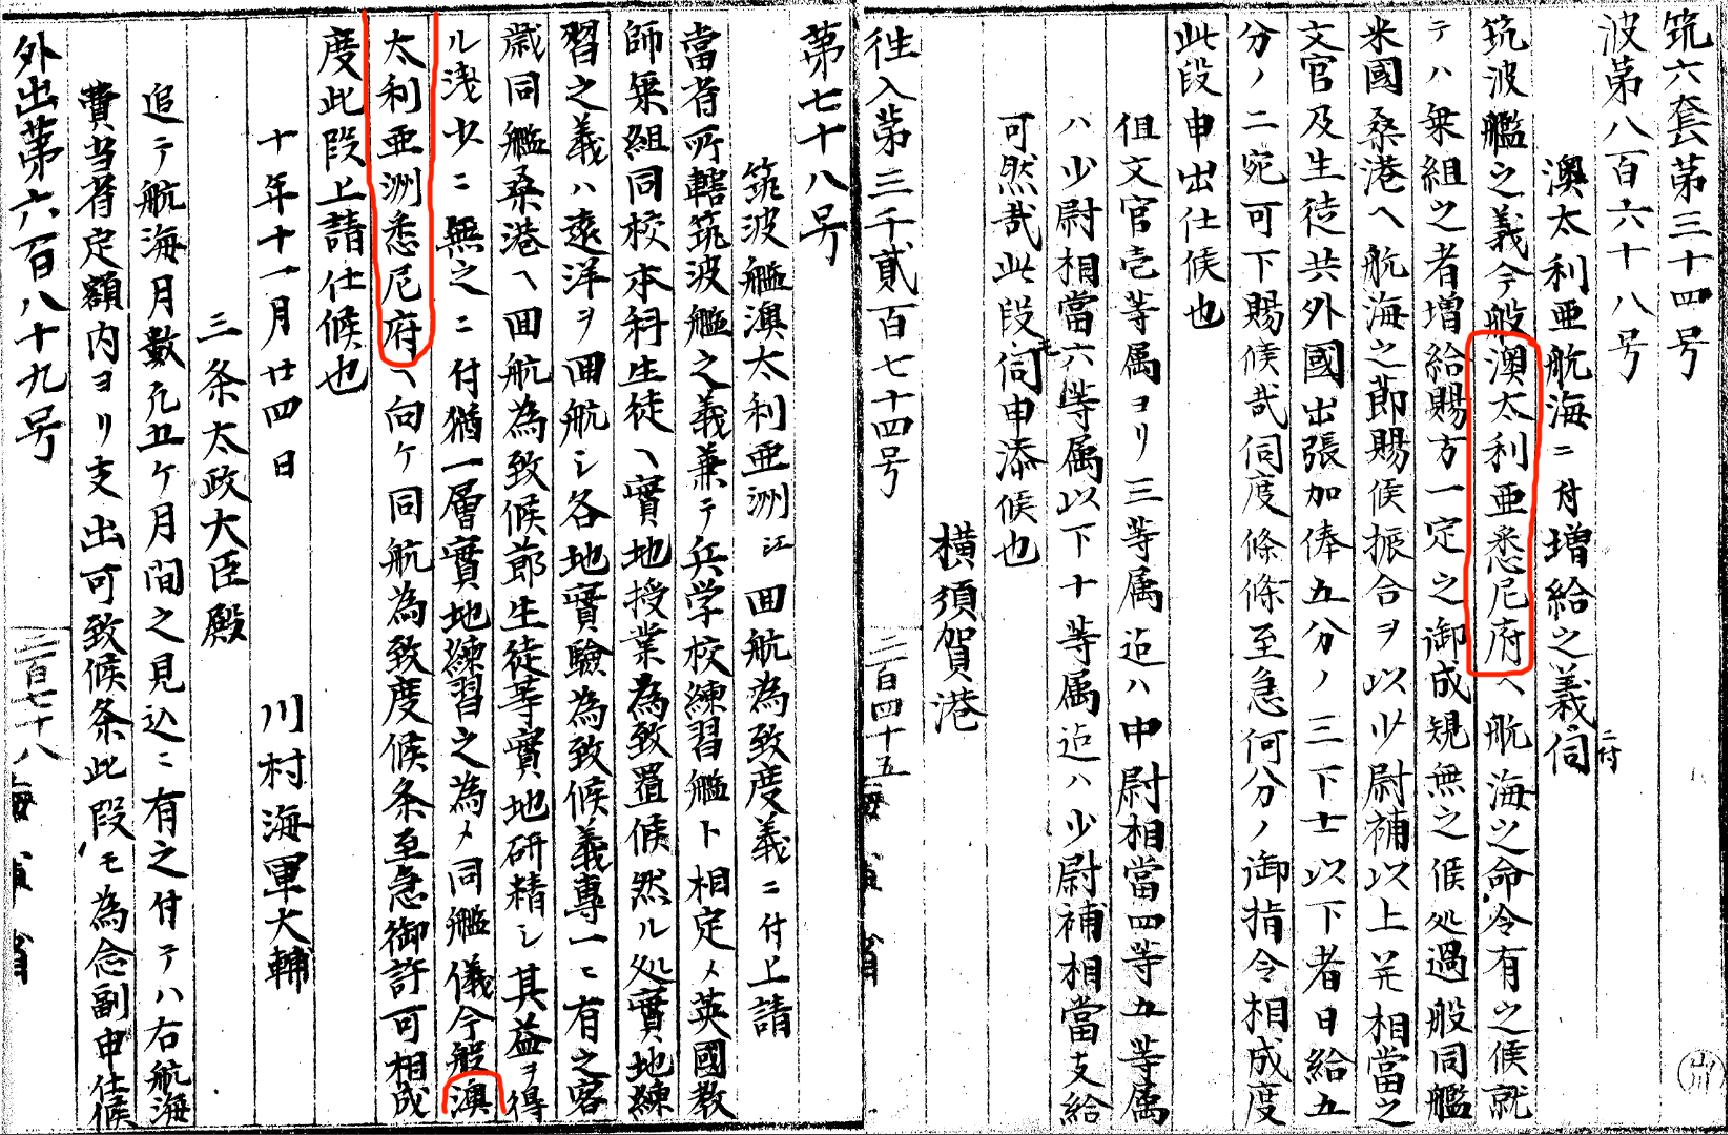 筑六套第三十四号
波第八百六十八号
澳太利亜航海ニ付増給之義伺
ニ付
筑波艦之義今般澳太利亜悉尼府ヘ航海之命令有之候就
テハ乗組之者増給賜方一定之御成規無之候処過般同艦
米國桑港ヘ航海之節賜候振合ヲ以少尉補以上并相當之
文官及生徒共外國出張加俸五分ノ三下士以下者日給五
分ノ二宛可下賜候哉伺度條條至急何分ノ御指令相成度
此段申出仕候也
但文官壱等属ヨリ三等属迠ハ中尉相當四等五等属
ハ少尉相當六等属以下十等属迠ハ少尉補相當支給
可然哉此段モ伺申添候也
横須賀港
往入第三千貳百七十四号
二百四十五
第七十八号
筑波艦澳太利亜洲江回航為致度義ニ付上請
當省所轄筑波艦之義兼テ兵学校練習艦ト相定メ英國教
師乗組同校本科生徒ヘ實地授業為致置候然ル処實地練
習之義ハ遠洋ヲ回航シ各地實驗為致候義專一ニ有之客
歳同艦桑港ヘ回航為致候節生徒等實地研精シ其益ヲ得
ル浅少ニ無之ニ付猶一層實地練習之為メ同艦儀今般澳
太利亜洲悉尼府ヘ向ケ同航為致度候条至急御許可相成
度此段上請仕候也
十年十一月廿四日
川村海軍大輔
三条太政大臣殿
追テ航海月數凡五ケ月間之見込ニ有之付テハ右航海
費当省定額内ヨリ支出可致候条此段モ為念副申仕候
外出第六百八十九号
二百七十八